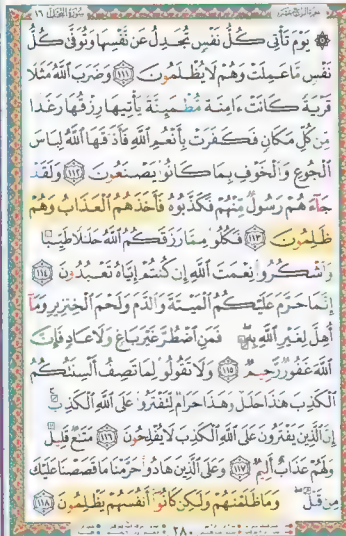 سورة النحل ١٦
يَوْمَ تَأْتِي كُلُّ نَفْسٍ تُجَٰدِلُ عَن نَّفْسِهَا وَتُوَفَّىٰ كُلُّ
نَفْسٍ مَّا عَمِلَتْ وَهُمْ لَا يُظْلَمُونَ ١١١ وَضَرَبَ ٱللَّهُ مَثَلًا
قَرْيَةً كَانَتْ ءَامِنَةً مُّطْمَئِنَّةً يَأْتِيهَا رِزْقُهَا رَغَدًا
مِّن كُلِّ مَكَانٍ فَكَفَرَتْ بِأَنْعُمِ ٱللَّهِ فَأَذَٰقَهَا ٱللَّهُ لِبَاسَ
ٱلْجُوعِ وَٱلْخَوْفِ بِمَا كَانُوا۟ يَصْنَعُونَ ١١٢ وَلَقَدْ
جَآءَهُمْ رَسُولٌ مِّنْهُمْ فَكَذَّبُوهُ فَأَخَذَهُمُ ٱلْعَذَابُ وَهُمْ
ظَٰلِمُونَ ١١٣ فَكُلُوا۟ مِمَّا رَزَقَكُمُ ٱللَّهُ حَلَٰلًا طَيِّبًا
وَٱشْكُرُوا۟ نِعْمَتَ ٱللَّهِ إِن كُنتُمْ إِيَّاهُ تَعْبُدُونَ ١١٤
إِنَّمَا حَرَّمَ عَلَيْكُمُ ٱلْمَيْتَةَ وَٱلدَّمَ وَلَحْمَ ٱلْخِنزِيرِ وَمَآ
أُهِلَّ لِغَيْرِ ٱللَّهِ بِهِۦ فَمَنِ ٱضْطُرَّ غَيْرَ بَاغٍ وَلَا عَادٍ فَإِنَّ
ٱللَّهَ غَفُورٌ رَّحِيمٌ ١١٥ وَلَا تَقُولُوا۟ لِمَا تَصِفُ أَلْسِنَتُكُمُ
ٱلْكَذِبَ هَٰذَا حَلَٰلٌ وَهَٰذَا حَرَامٌ لِّتَفْتَرُوا۟ عَلَى ٱللَّهِ ٱلْكَذِبَ
إِنَّ ٱلَّذِينَ يَفْتَرُونَ عَلَى ٱللَّهِ ٱلْكَذِبَ لَا يُفْلِحُونَ ١١٦ مَتَٰعٌ قَلِيلٌ
وَلَهُمْ عَذَابٌ أَلِيمٌ ١١٧ وَعَلَى ٱلَّذِينَ هَادُوا۟ حَرَّمْنَا مَا قَصَصْنَا عَلَيْكَ
مِن قَبْلُ وَمَا ظَلَمْنَٰهُمْ وَلَٰكِن كَانُوٓا۟ أَنفُسَهُمْ يَظْلِمُونَ ١١٨
٢٨٠